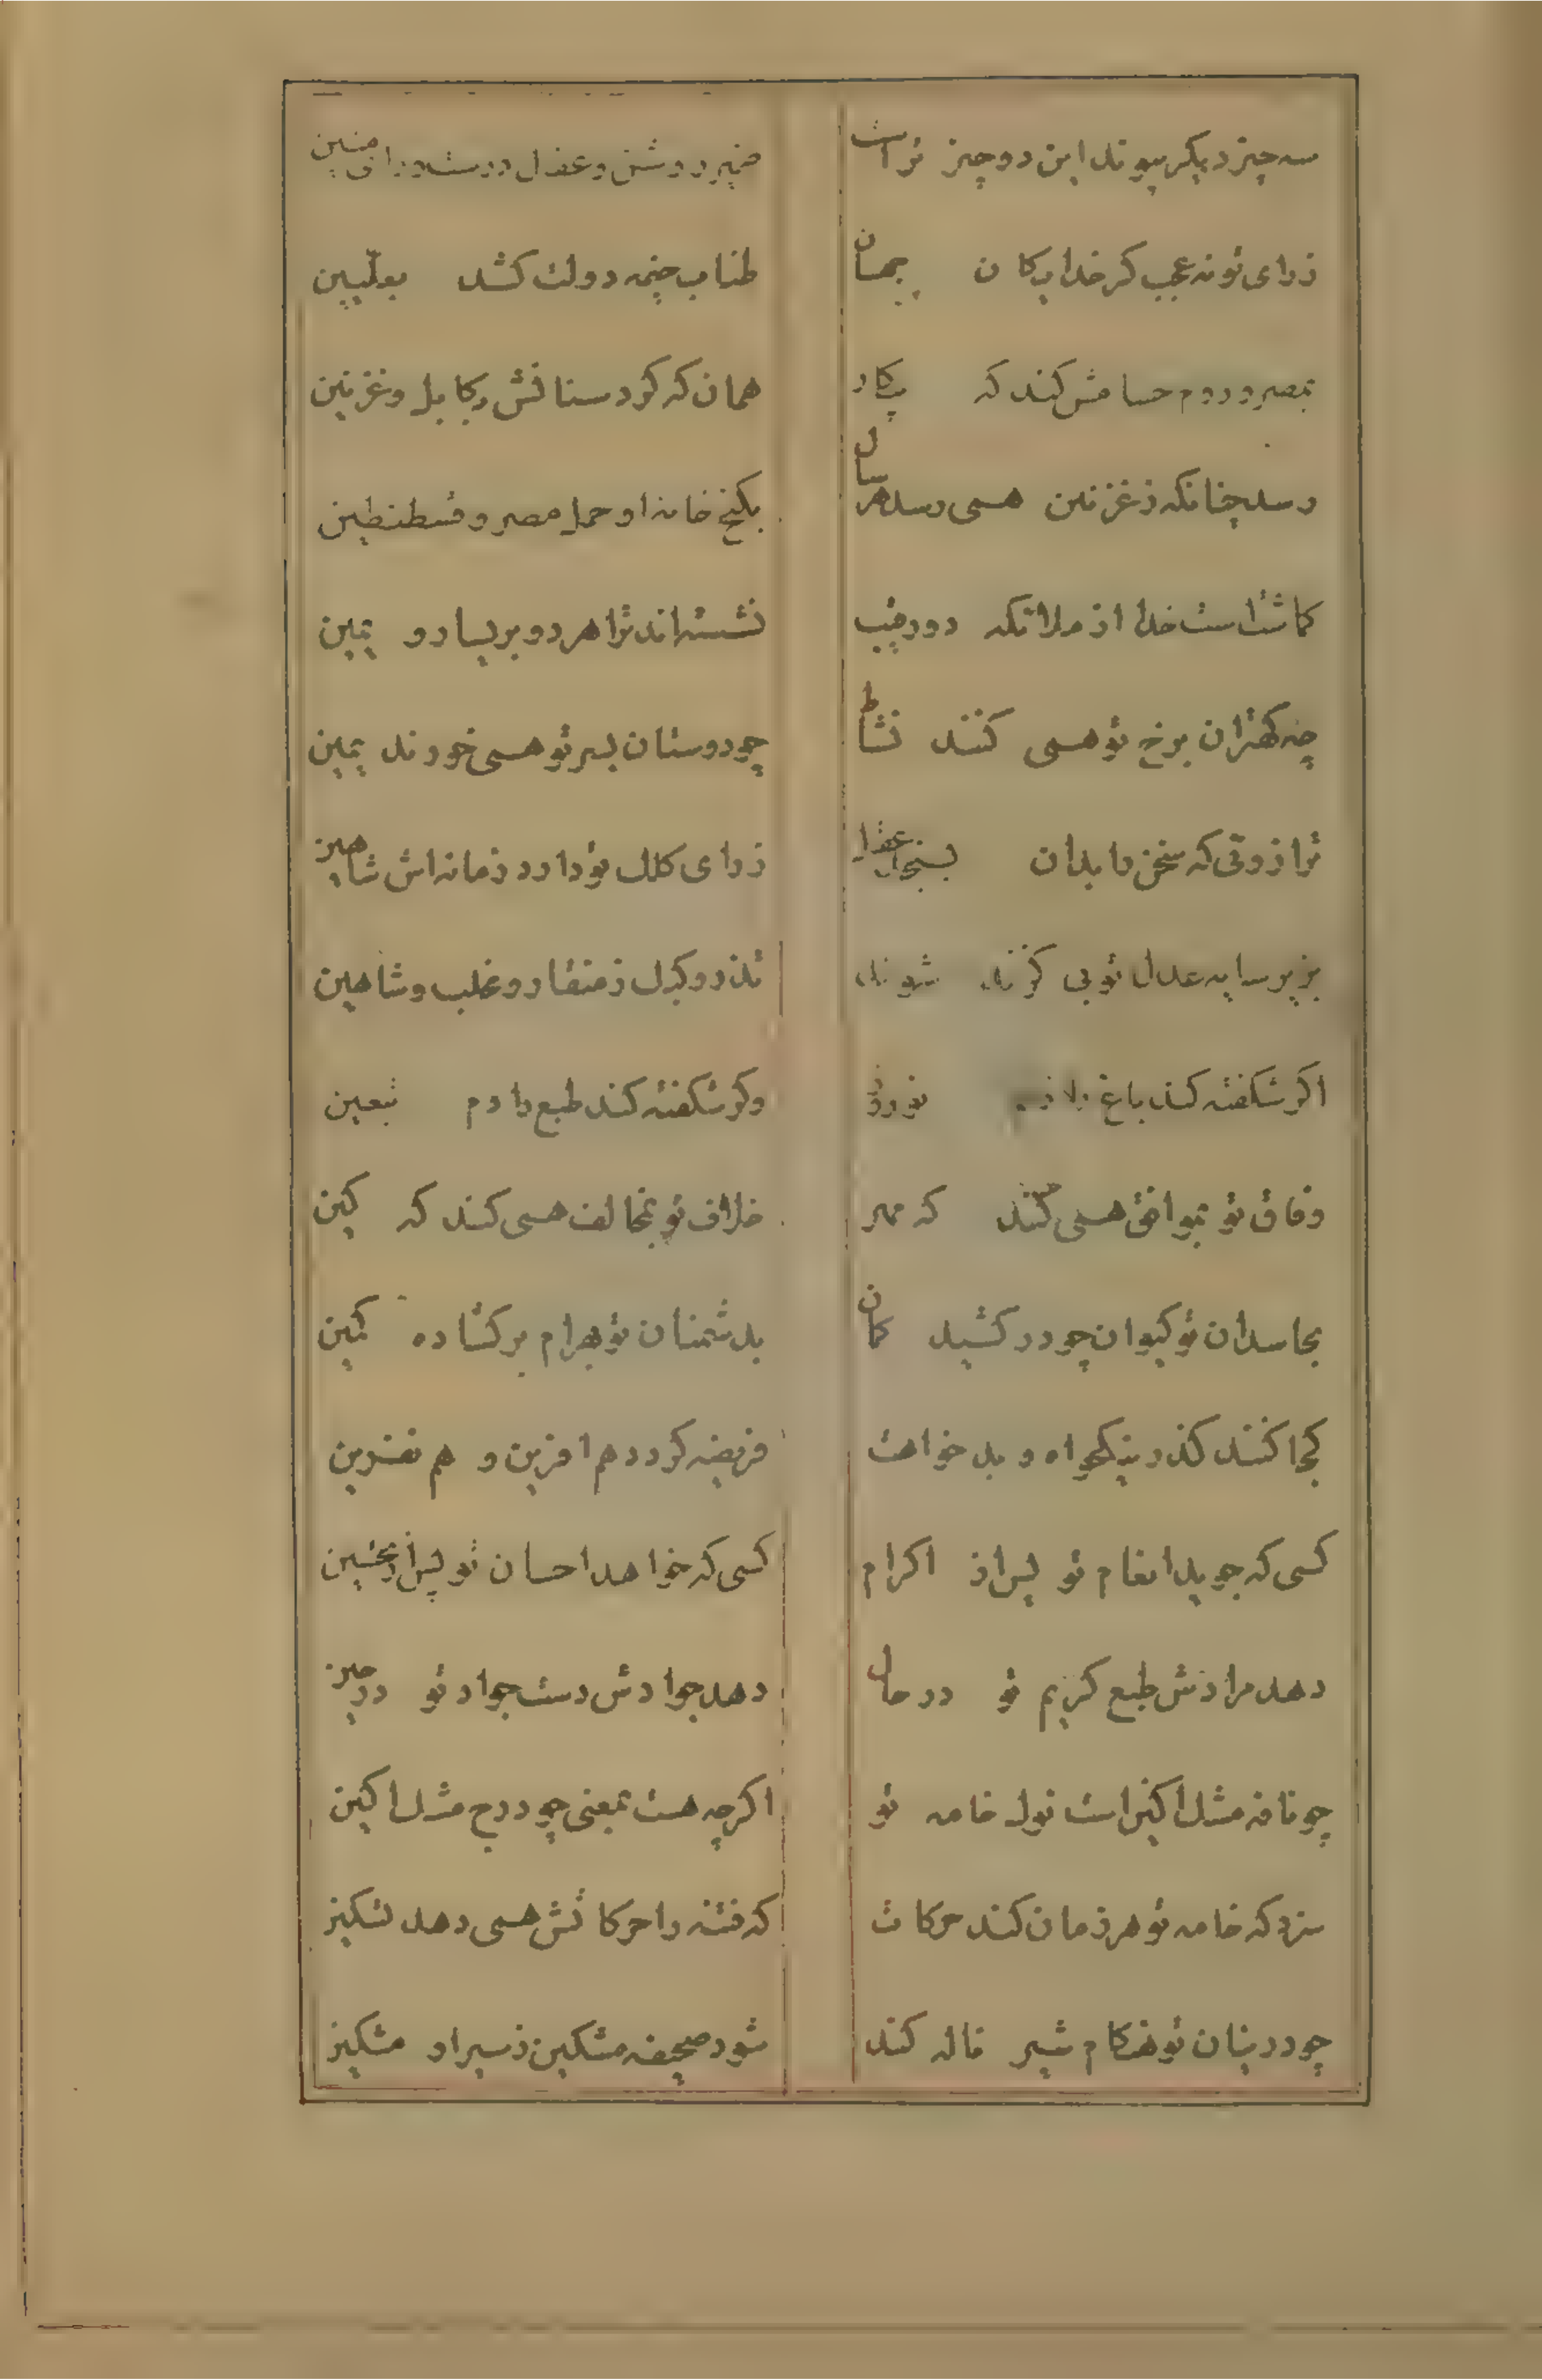 سه چیز دیکر پیوند این دو چیز تراست ضمیر روشن و عقل درست و رای متین
ز رای تو نه عجب کر خدایکان جهان طناب خیمه دولت کشد بعلیین
بمصر و روم حسامش کند که پیکار همان که کرد سنانش بکابل و غزنین
رسد چنانکه ز غزنین همی رسد هر سال بکنج خانه او حمل مصر و قسطنطین
کماشتست خدا از ملائکه دو رقیب نشسته اند ترا هر دو بر یسار و یمین
چه کهتران برخ تو همی کنند نشاط چو دوستان بسر تو همی خورند یمین
ترازوئی که سخن را بدان بسنجد عقل ز رای کلک تو دارد زمانه اش شاهین
بزیر سایه عدل تو بی کزند شوند تذرو و کبک ز منقار و مخلب و شاهین
اکر شکفته کند باغ را نوروز وکر شکفته کند طبع را دم تبعین
وفاق تو بموافق همی کند که مهر خلاف تو بمخالف همی کند که کین
بحاسدان تو کیوان چو در کشید کمان بدشمنان تو بهرام بر کشاده کمین
کجا کنند کذر نیکخواه و بد خواهت فریضه کردد هم افرین و هم نفرین
کسی که جوید انعام تو پس از اکرام کسی که خواهد احسان تو پس از تحسین
دهد مرادش طبع کریم تو در حال دهد جوادش دست جواد تو در حین
چو نافه مشک اکین است نوک خامه تو اکرچه هست بمعنی چو درج مشک اکین
سزد که خامه تو هر زمان کند حرکات که فتنه را حرکاتش همی دهد تسکین
چو در بنان تو هنکام شیر ناله کند شود صحیفه مشکین ز سیر او مشکین